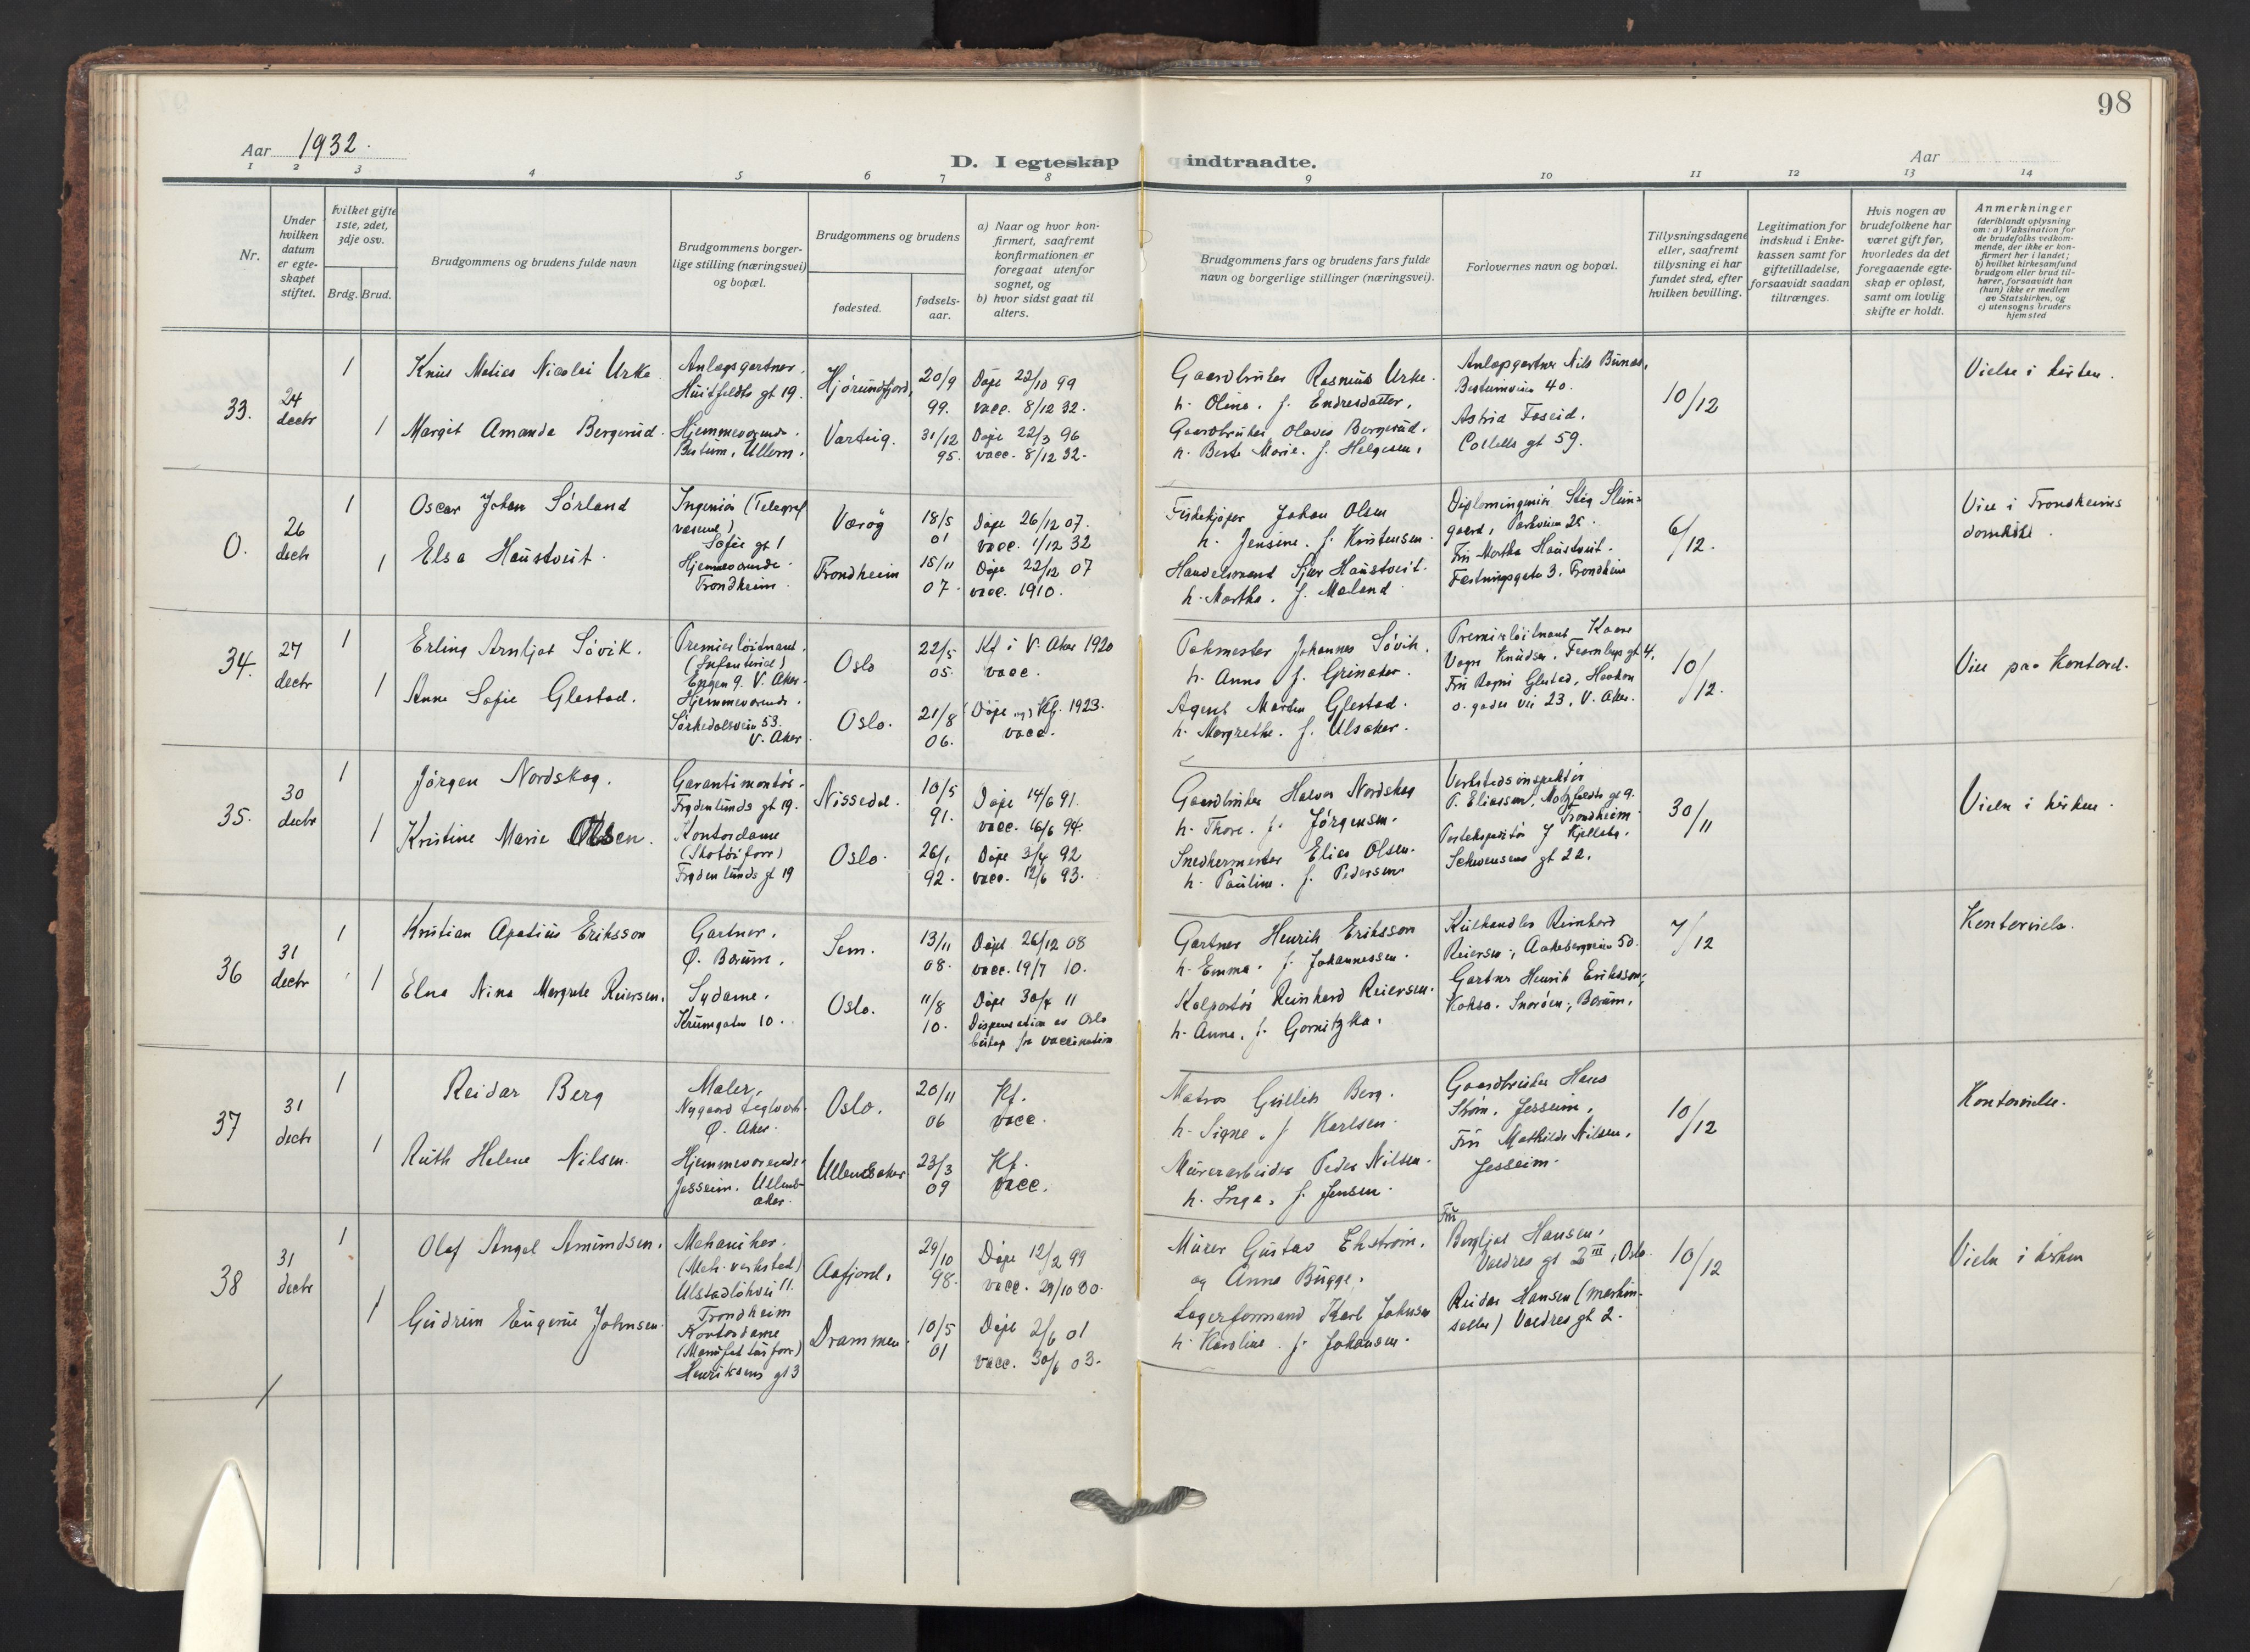 98
Aar 1932.
D. I egteskap indtraadte.
Aar
1 2 3 4 5 6 7 8 9 10 11 12 13 14
Nr.
Under
hvilken
datum
er egte-
skapet
stiftet.
hvilket gifte
1ste, 2det,
3dje osv.
Brdg. Brud.
Brudgommens og brudens fulde navn
Brudgommens borger-
lige stilling (næringsvei)
og bopæl.
Brudgommens og brudens
fødested.
fødsels-
aar.
a) Naar og hvor kon-
firmert, saafremt
konfirmationen er
foregaat utenfor
sognet, og
b) hvor sidst gaat til
alters.
Brudgommens fars og brudens fars fulde
navn og borgerlige stillinger (næringsvei).
Forlovernes navn og bopæl.
Tillysningsdagene
eller, saafremt
tillysning ei har
fundet sted, efter
hvilken bevilling.
Legitimation for
indskud i Enke-
kassen samt for
giftetilladelse,
forsaavidt saadan
tiltrænges.
Hvis nogen av
brudefolkene har
været gift før,
hvorledes da det
foregaaende egte-
skap er opløst,
samt om lovlig
skifte er holdt.
Anmerkninger
(deriblandt oplysning
om: a) Vaksination for
de brudefolks vedkom-
mende, der ikke er kon-
firmert her i landet;
b) hvilket kirkesamfund
brudgom eller brud til-
hører, forsaavidt han
(hun) ikke er medlem
av Statskirken, og
c) utensogns bruders
hjemsted
33.
24
dectr
1
1
Knut Matias Nicolai Urke
Margit Amanda Bergerud.
Anlægsgartner.
Huitfeldts gt 19.
Hjemmeværende.
Bestum, Ullern.
Hjørundfjord,
Varteig.
20/9
99.
31/12
95.
Døpt 22/10 99
vacc. 8/12 32.
Døpt 22/3 96
vacc. 8/12 32.
Gaardbruker Rasmus Urke.
h. Oline. f. Endresdatter.
Gaardbruker Olaves Bergerud.
h. Berte Marie. f. Helgesen.
Anlægsgartner Nils
Bestumveien 40.
Astrid
Colletts gt 59.
10/12
Vielse i kirken.
0.
26
dectr
1
1
Oscar Johan Sørland
Elsa Haustveit.
Ingeniør (Telegraf
væsenet)
Sofie gt 1
Hjemmeværende.
Trondheim.
Værøy
Trondheim
18/5
01
15/11
07.
Døpt 26/12 07.
vacc. 1/12 32
Døpt 22/12 07
vacc. 1910.
Fiskekjøper Johan Olsen
h. Jensine. f. Kristensen.
Handelsmand Sjur Haustveit.
h. Martha. f. Maland
Diplomingeniør Stig Slun=
gaard, Parkveien 25.
Fru Martha Haustveit.
Festningsgata 3. Trondheim
6/12.
Viet i Trondheims
domkirke.
34.
27
dectr
1
1
Erling Arnljot Søvik.
Anne Sofie Glestad.
Premierløitnant.
(Infanteriet)
Engen 9. V. Aker.
Hjemmeværende.
Sørkedalsveien 53.
V. Aker.
Oslo
Oslo.
22/5
05.
21/8
06.
Kf i V. Aker 1920
vacc.
Døpt og Kf. 1923.
vacc.
Pakmester Johannes Søvik.
h. Anna f. Grinaker.
Agent Morten Glestad.
h. Margrethe. f. Ulsaker.
Premierløitnant Kaare
Vagn Knudsen. Fearnleys gt 4.
Fru Ragni Glestad, Haakon
d. godes vei 23, V. Aker.
10/12.
Viet paa Kontoret.
35.
30
dectr
1
1
Jørgen Nordskog.
Kristine Marie Olsen.
Garantimontør.
Frydenlunds gt 19.
Kontordame
(Skotøiforr)
Frydenlunds gt 19
Nissedal.
Oslo.
10/5
91.
26/1
92.
Døpt 14/6 91.
vacc. 16/6 94.
Døpt 3/4 92
vacc. 12/6 93.
Gaardbruker Halvor Nordskog
h. Thore. f. Jørgensen.
Snedkermester Elias Olsen.
h. Pauline. f. Pedersen
Verkstedsinspektør
P. Eliassen, Motzfeldts gt 9.
Trondheim.
Postekspeditør J Kjelleby.
Schwensens gt 22.
30/11
Vielse i kirken.
36
31
dectr
1
1
Kristian Apatius Eriksson
Elna Nina Margrete Reiersen.
Gartner.
Ø. Bærum.
Sydame.
Krumgaten 10.
Sem.
Oslo.
13/11
08.
11/8
10.
Døpt 26/12 08
vacc. 19/7 10.
Døpt 30/4 11
Dispensation av Oslo
biskop fra vaccination
Gartner Henrik Eriksson
h. Emma. f. Johannessen.
Kolportør Reinhard Reiersen.
h. Anna. f. Gornitzka.
Kulhandler Reinhard
Reiersen, Aakebergveien 50.
Gartner Henrik Eriksson,
Koksa. Snarøen, Bærum.
7/12
Kontorvielse.
37
31
dectr
1
1
Reidar Berg
Ruth Helene Nilsen.
Maler,
Nygaard teglverk.
Ø. Aker.
Hjemmeværende.
Jessheim. Ullens-
aker.
Oslo.
Ullensaker
20/11
06
23/3
09
Kf.
vacc.
Kf.
vacc.
Matros Gullik Berg.
h. Signe. f Karlsen.
Murerarbeider Peder Nilsen.
h. Inga. f. Jensen.
Gaardbruker Hans
Strøm, Jessheim.
Fru Mathilde Nilsen,
Jessheim.
10/12
Kontorvielse.
38
31
dectr
1
1
Olaf Angel Amundsen.
Gudrun Eugenie Johnsen.
Mekaniker.
(Mek. verksted)
Ulstadløkvei 11.
Trondheim
Kontordame
(Manufakturforr)
Henriksens gt 3
Aafjord.
Drammen.
29/10
98.
10/5
01
Døpt 12/2 99
vacc. 29/10 00.
Døpt 2/6 01
vacc. 30/6 03.
Murer Gustav Ekstrøm.
og Anna Bugge.
Lagerformand Karl Johnsen
h. Karoline. f. Johansen.
Fru
Bergljot Hansen.
Valdres gt 2 III, Oslo.
Reidar Hansen (maskin-
setter) Valdres gt 2.
10/12
Vielse i kirken